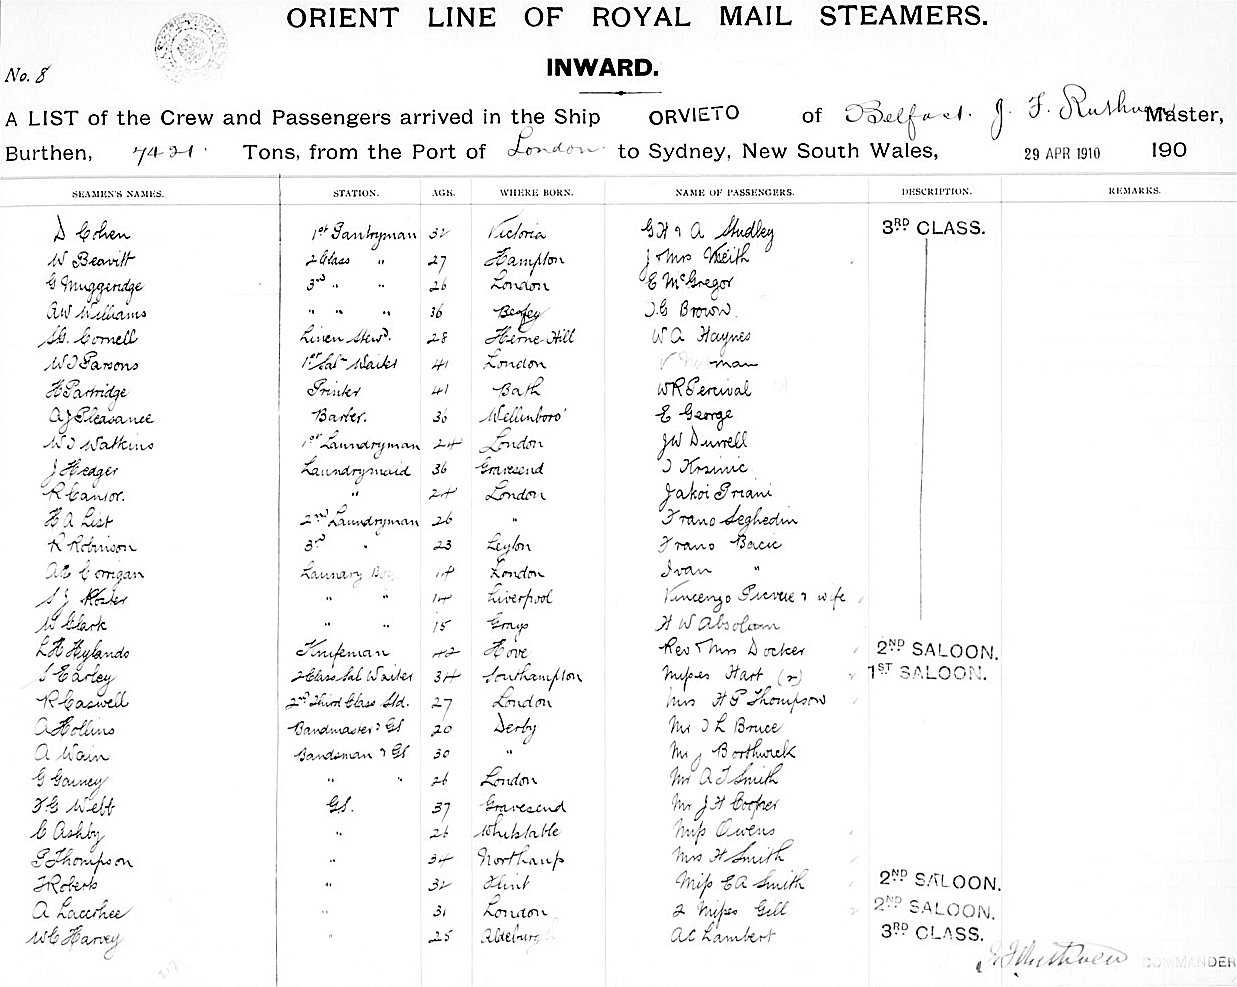 ORIENT LINE OF ROYAL MAIL STEAMERS.
INWARD.
No. 8
A LIST of the Crew and Passengers arrived in the Ship ORVIETO of Belfast. J. F. Ruthven Master,
Burthen, 7421 Tons, from the Port of London to Sydney, New South Wales, 29 APR 1910 190
SEAMEN'S NAMES. STATION. AGE. WHERE BORN. NAME OF PASSENGERS. DESCRIPTION. REMARKS.
D Cohen 1st Pantryman 32 Victoria G H & A Studley 3RD CLASS.
W Beavitt 2 Class " 27 Hampton J & Mrs Keith
G Muggeridge 3rd " " 26 London E McGregor
A W Williams " " " 36 Bexley J. G Brown.
Cornell Linen Stewd. 28 Herne Hill W A Haynes
W J Parsons 1st Sal Waiter 41 London man
H Partridge Printer 41 Bath W R Percival
A J Pleasance Barber. 30 Wellinboro' E George
W J Watkins 1st Laundryman 24 London J W Durrell
J Hedger Laundrymaid 36 Gravesend
R Cantor. " 24 London Jakov
H A List 2nd Laundryman 26 " Frano Seghedin
R Robinson 3rd " 23 Leyton Frano Bacic
A E Corrigan Laundry Boy London Ivan "
" " 14 Liverpool Vincenzo & wife
W Clark " " 15 Grays H W Absolom
L H Hylands Knifeman 42 Hove Rev & Mrs Docker 2ND SALOON.
S Earley 2 Class Sal Waiter 34 Southampton Misses Hart (2) 1ST SALOON.
R Caswell 2nd Third Class Std. 27 London Mrs H P Thompson
A Hollins Bandmaster & GS 20 Derby Mr J L Bruce
A Wain Bandsman & GS 30 " Mr J Borthwick
G Gainey " " 26 London Mr A J Smith
F G Webb G.S. 37 Gravesend Mr J H Cooper
C Ashby " 26 Whitstable Miss Owens
P Thompson " 34 Northaup Mrs H Smith
J Roberts " 32 Flint Miss E A Smith 2ND SALOON.
A " 31 London 2 Misses Gill 2ND SALOON.
W C Harvey " 25 Aldeburgh A C Lambert 3RD CLASS.
J F Ruthven COMMANDER